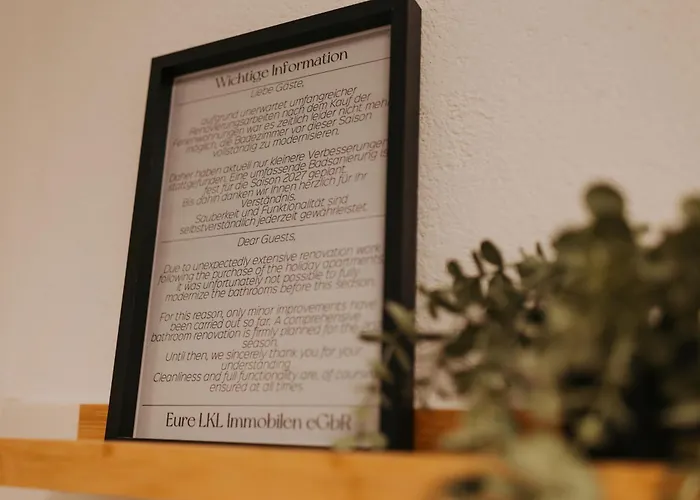 Wichtige Information
Liebe Gäste,
aufgrund unerwartet umfangreicher
Renovierungsarbeiten nach dem Kauf der
Ferienwohnungen war es zeitlich leider nicht mehr
möglich, die Badezimmer vor dieser Saison
vollständig zu modernisieren.
Daher haben aktuell nur kleinere Verbesserungen
stattgefunden. Eine umfassende Badsanierung ist
fest für die Saison 2027 geplant.
Bis dahin danken wir Ihnen herzlich für Ihr
Verständnis.
Sauberkeit und Funktionalität sind
selbstverständlich jederzeit gewährleistet.
Dear Guests,
Due to unexpectedly extensive renovation work
following the purchase of the holiday apartments,
it was unfortunately not possible to fully
modernize the bathrooms before this season.
For this reason, only minor improvements have
been carried out so far. A comprehensive
bathroom renovation is firmly planned for the
season.
Until then, we sincerely thank you for your
understanding.
Cleanliness and full functionality are, of course,
ensured at all times.
Eure LKL Immobilen eGbR